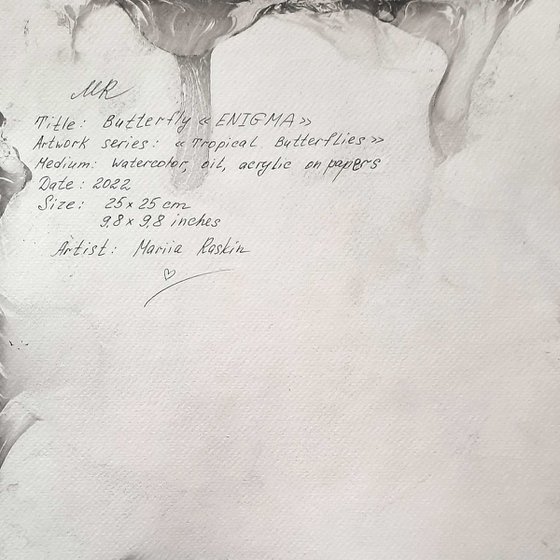 MR
Title: Butterfly « ENIGMA »
Artwork series: « Tropical Butterflies »
Medium: watercolor, oil, acrylic on papers
Date: 2022
Size: 25 x 25 cm
9,8 x 9,8 inches
Artist: Mariia Raskin